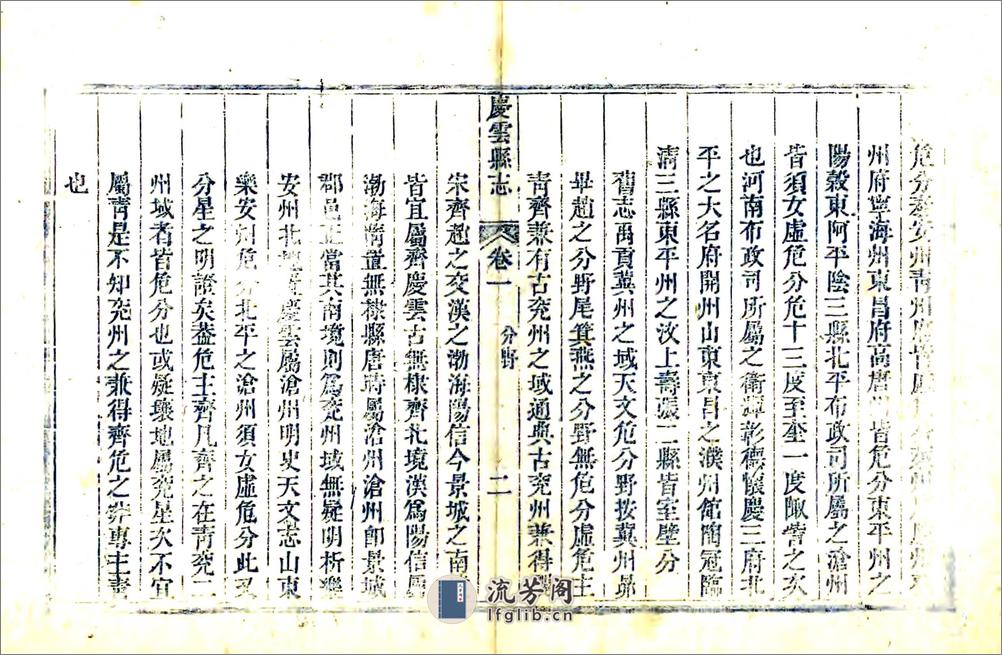 危分泰安州青州府皆
州府寧海州東昌府高唐州皆危分東平州之
陽穀東阿平陰三縣北平布政司所屬之滄州
皆須女虛危分危十三度至奎一度陬訾之次
也河南布政司所屬之衛輝彰德懷慶三府北
平之大名府開州山東東昌之濮州館陶冠臨
清三縣東平州之汶上壽張二縣皆室壁分
舊志禹貢冀州之域天文危分野按冀州昴
畢趙之分野尾箕燕之分野無危分虛危主
青齊兼有古兗州之域通典古兗州兼得
慶雲縣志
卷一
分野
二
宋齊趙之交漢之渤海陽信今景城之南
皆宜屬齊慶雲古無棣齊北境漢為陽信屬
渤海隋置無棣縣唐時屬滄州滄州即景城
郡邑正當其南境則為兗州域無疑明析樂
安州北地置慶雲屬滄州明史天文志山東
樂安州危分北平之滄州須女虛危分此又
分星之明證矣蓋危主齊凡齊之在青兗二
州域者皆危分也或疑壤地屬兗星次不宜
屬青是不知兗州之兼得齊危之非專主青
也
流芳阁
lfglib.cn